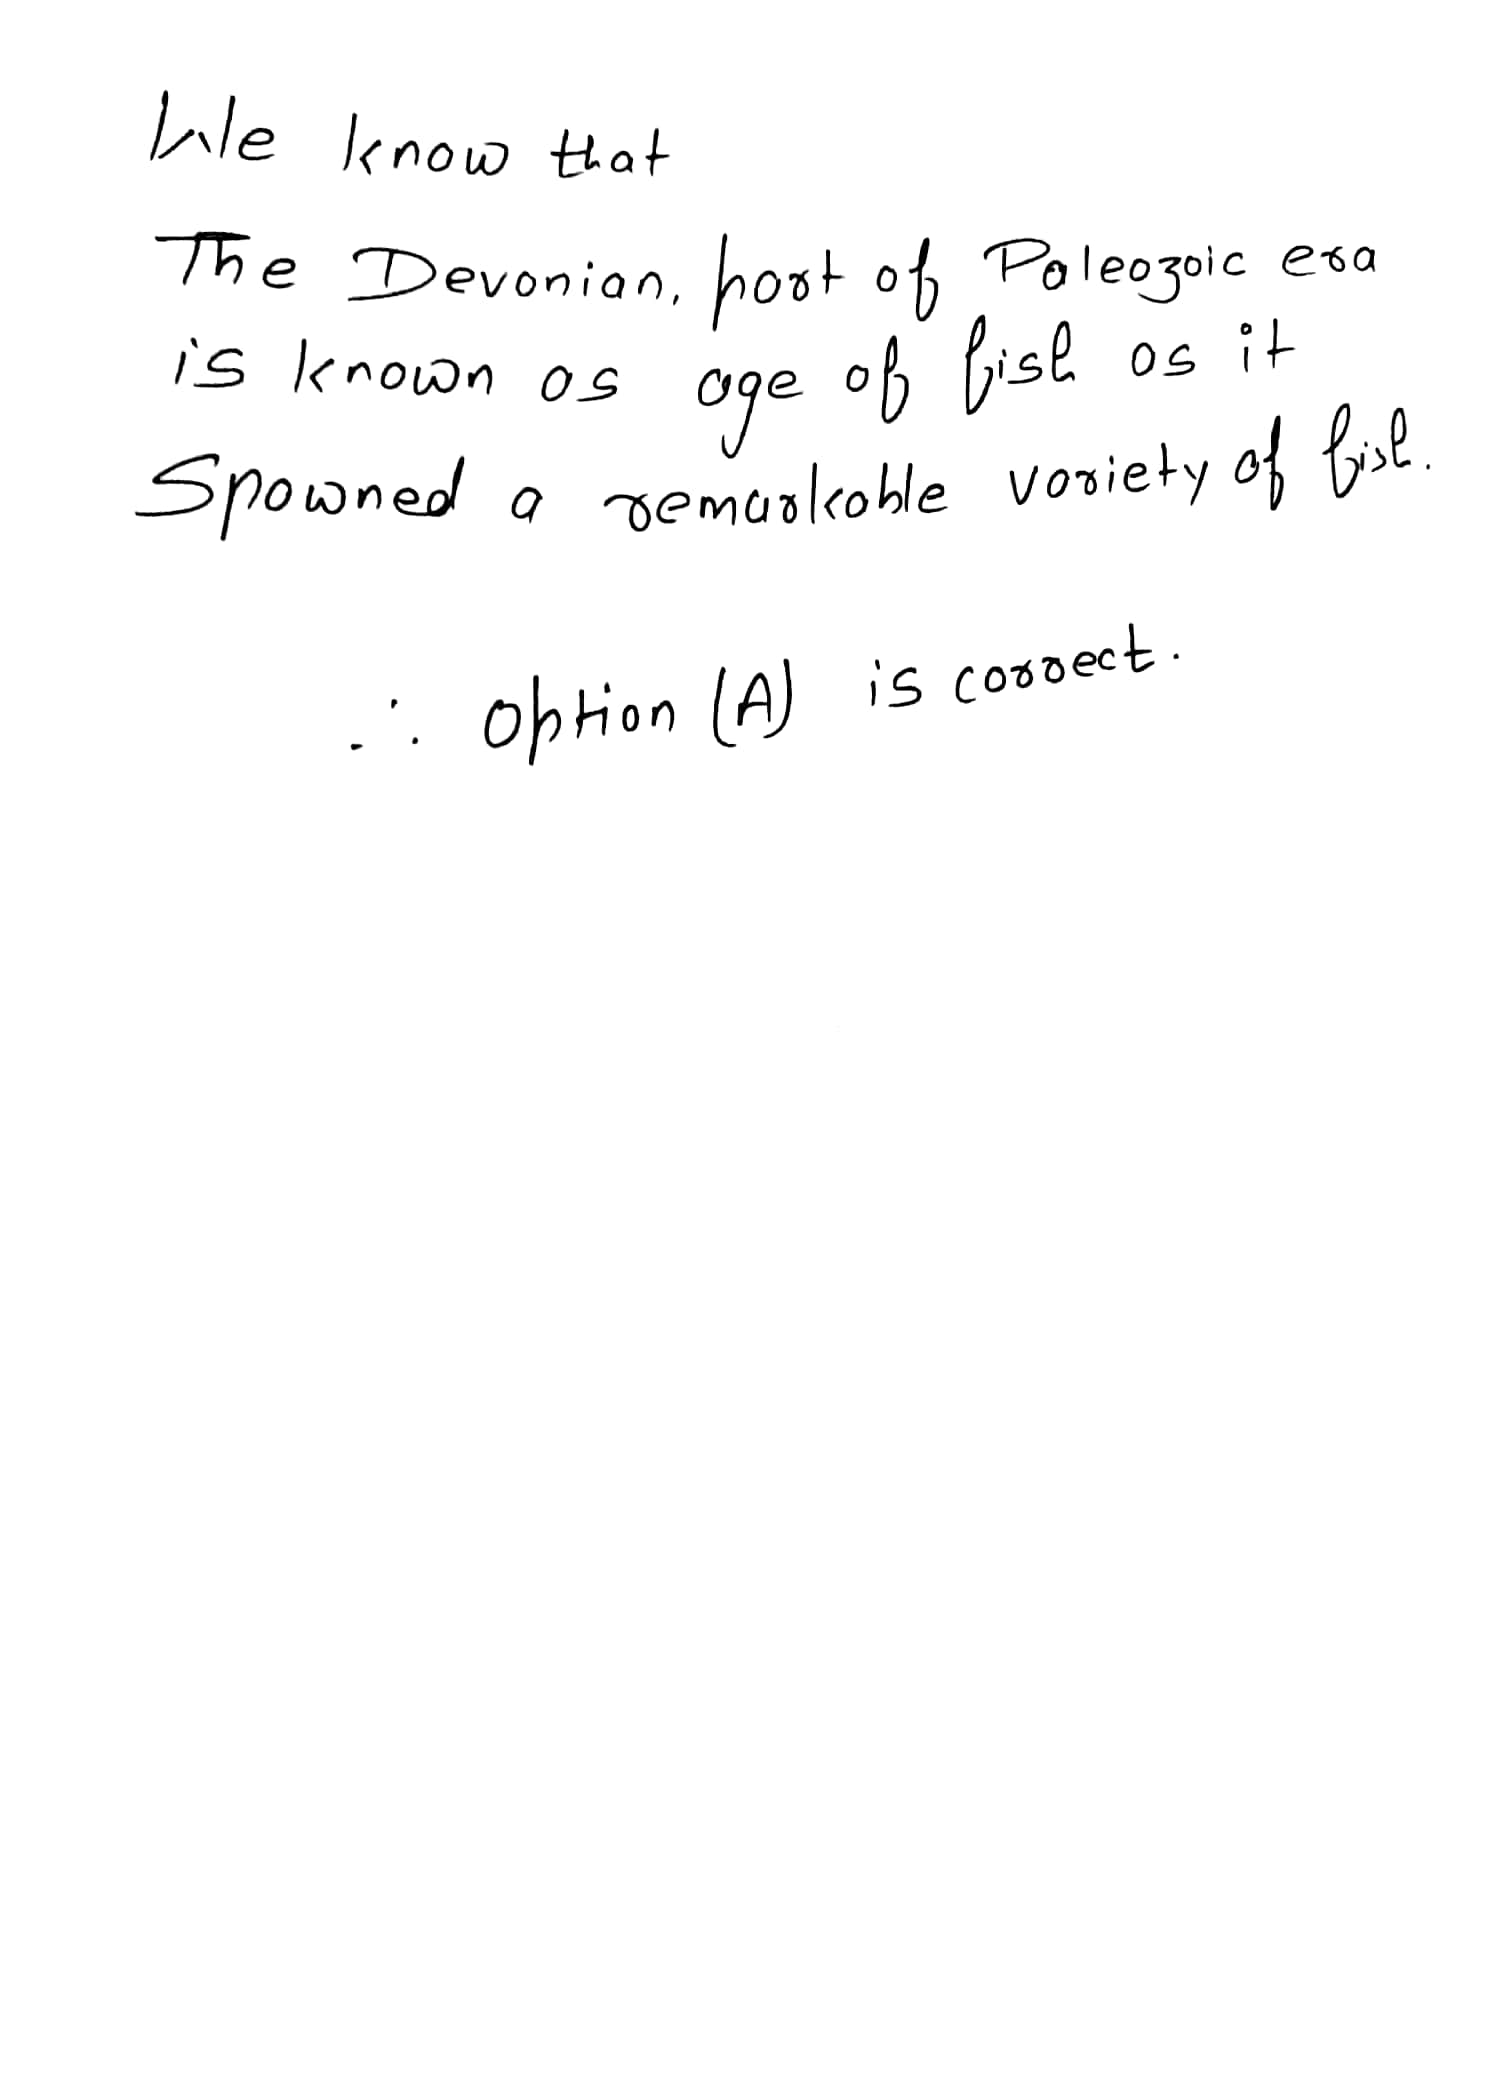 We know that
The Devonian, part of Paleozoic era
is known as age of fish as it
Spawned a remarkable variety of fish.
∴ Option (A) is correct.